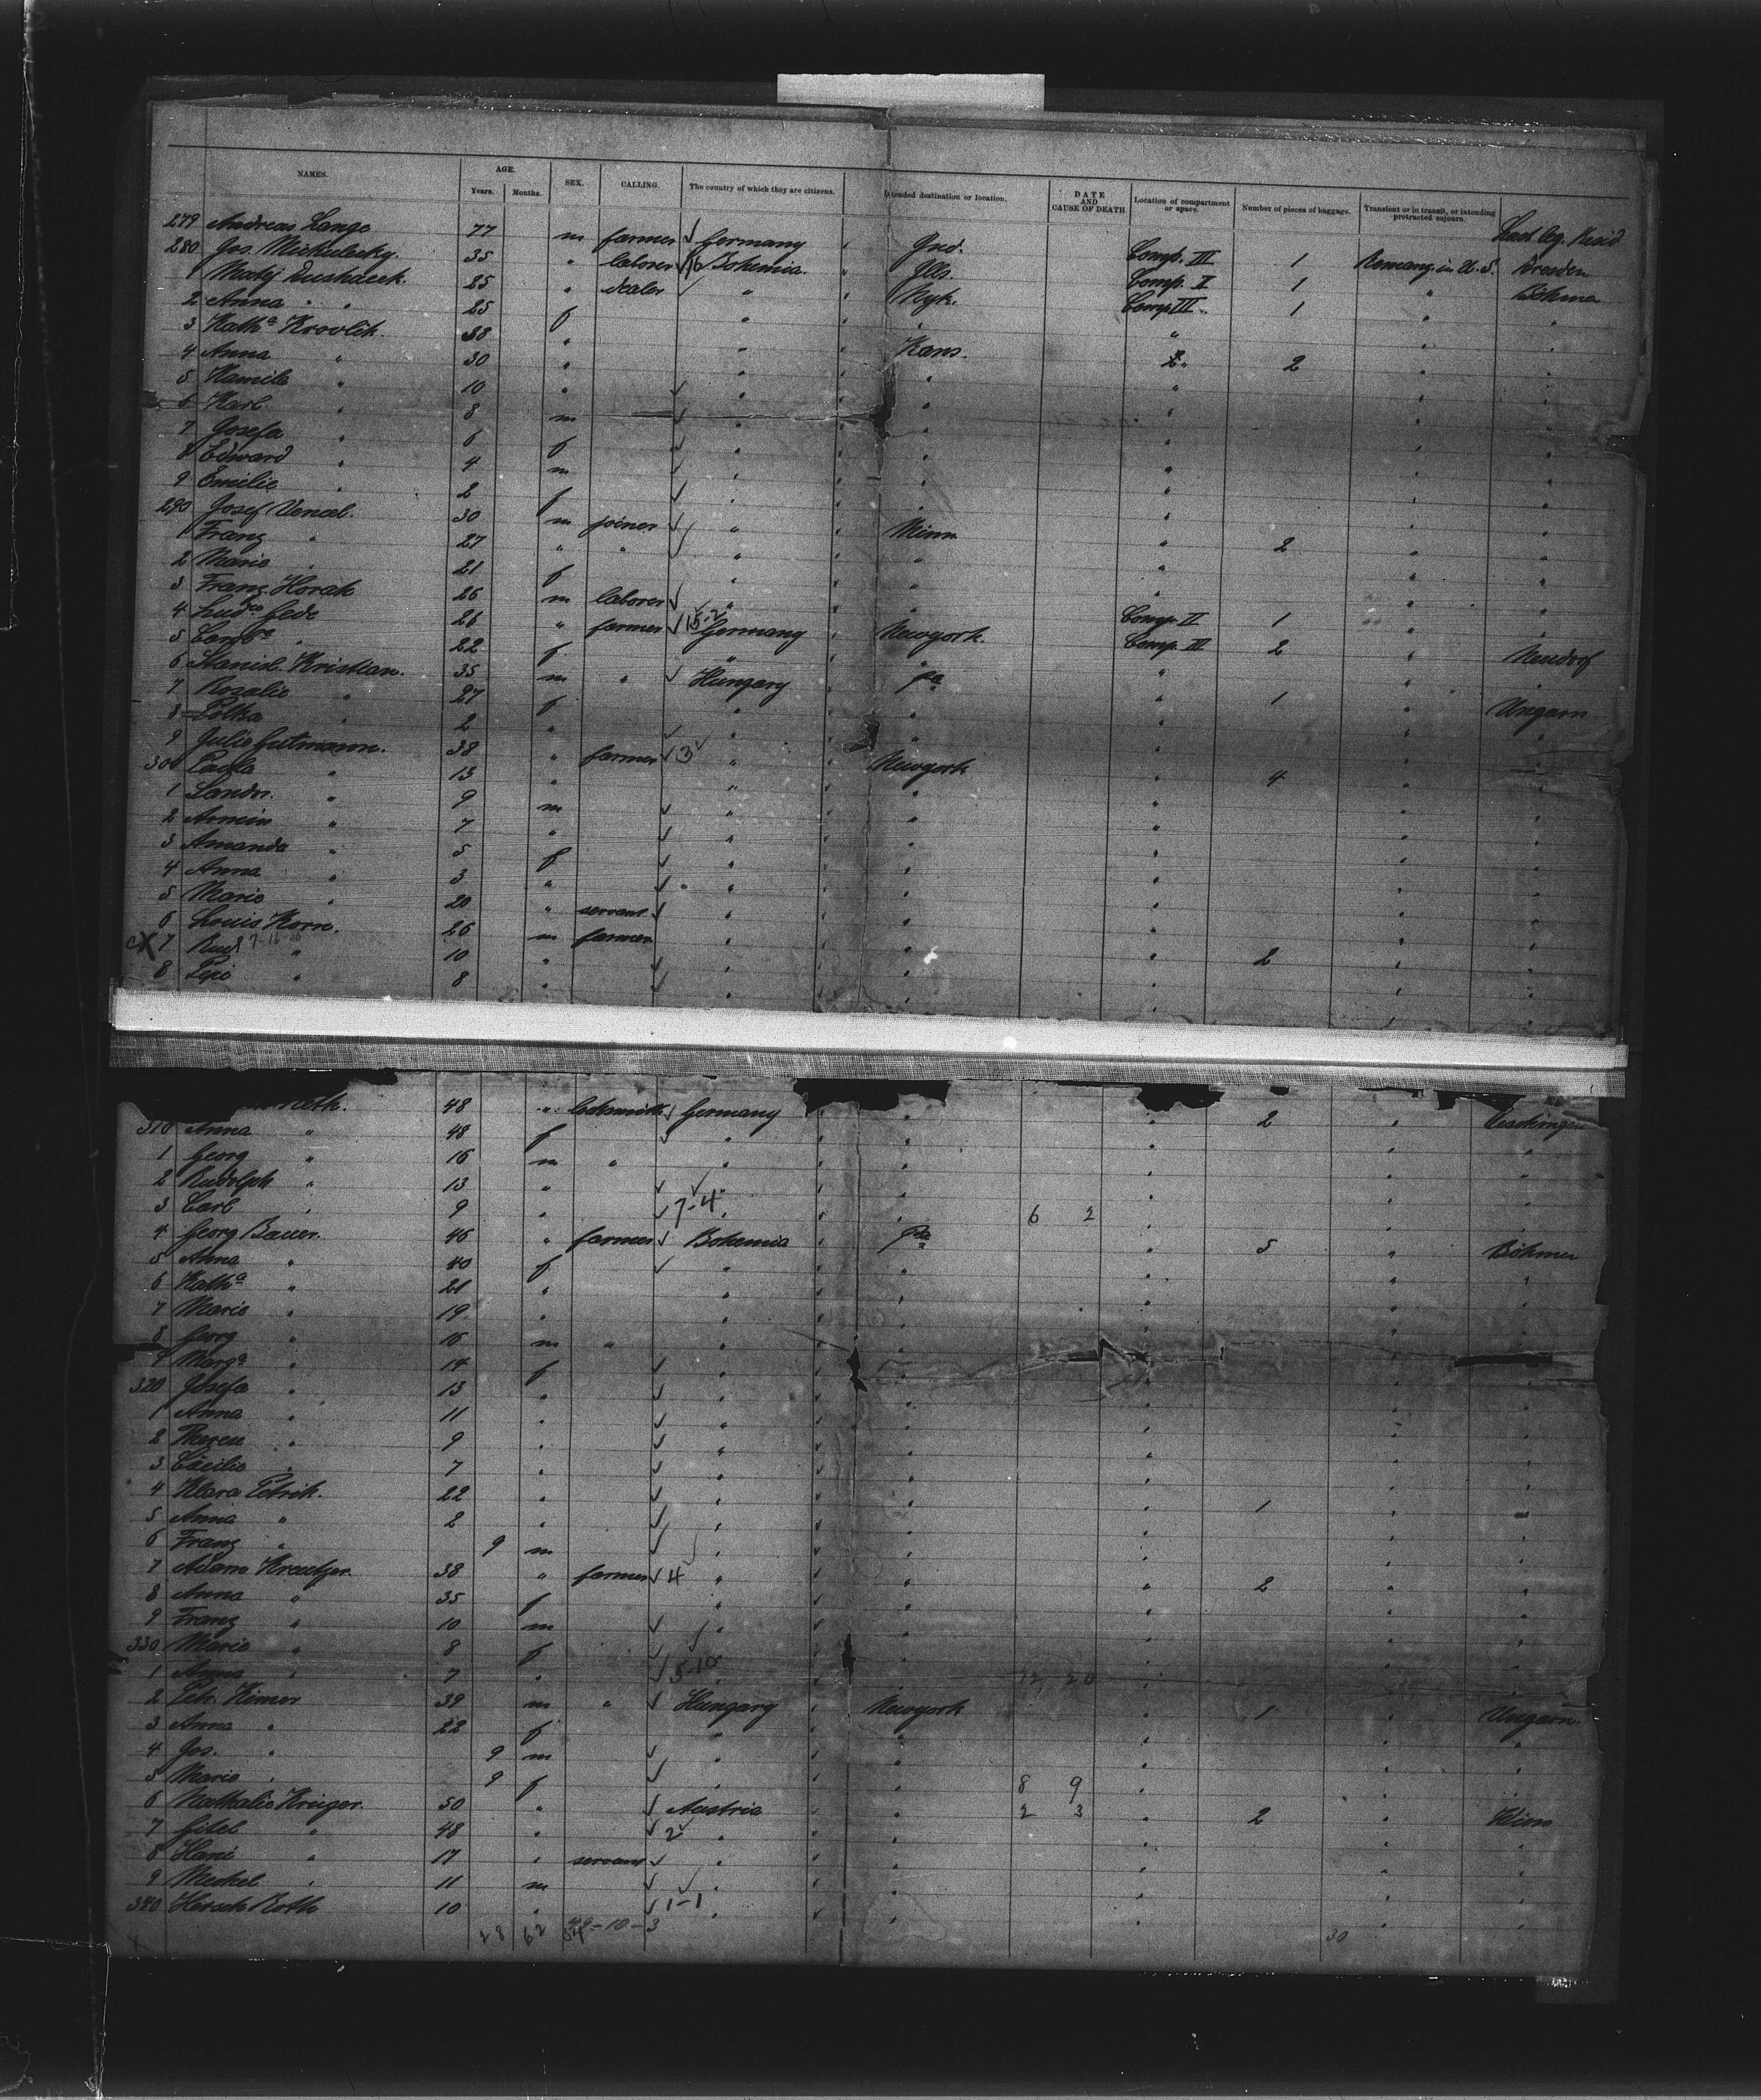 NAMES. AGE. Years. Months. SEX. CALLING. The country of which they are citizens. Intended destination or location. DATE AND CAUSE OF DEATH Location of compartment or space. Number of pieces of baggage. Transient or in transit, or intending protracted sojourn. Last leg. Resid
279 Andreas Lange 77 m farmer Germany Ind. Comp. III 1 Remang. in U.S. Dresden
280 Jos. Mickulecky. 35 " laborer Bohemia. Ills. Comp. II 1 " Böhmen
Matej 25 " dealer " Nyk. Comp III 1 " "
2 Anna " 25 f " " " " "
3 Kath.a Krovlik. 38 " " Kans. 2 "
4 Anna " 30 " " " " "
5 Kamila " 10 " " " " "
6 Karl " 8 m " " " "
7 Josefa " 6 f " " " "
8 Edward " 4 m " " " "
9 Emilie " 2 f " " " "
290 Josef Vencel. 30 m joiner " Minn " 2 " "
1 Franz " 27 " " " " " " "
2 Marie " 21 f " " " " "
3 Franz Horak 26 m laborer " " Comp. II 1 " "
4 26 " farmer 15-2 Germany Newyork. Comp. III 2 " Neudorf
5 22 f " " " " "
6 Stanisl. Kristian. 35 m " Hungary Pa " 1 " Ungarn
7 Rosalie " 27 f " " " " "
8 " 2 " " " " " "
9 Julie Gutmann. 38 " farmer 3 " Newyork " 4 " "
300 Paula " 13 " " " " " "
1 Sandor. " 9 m " " " " "
2 Armin " 7 " " " " " "
3 Amanda " 5 f " " " " "
4 Anna " 3 " " " " " "
5 Marie " 20 " servant " " " " "
6 Louis Korn. 26 m farmer " " " 2 " "
cX 7 Rud. " 10 " " " " " "
8 Pepi " 8 " " " " " "
48 " locksmith Germany " " 2 "
310 Anna " 48 f " " " " "
1 Georg " 16 m " " " " " "
2 Rudolph " 13 " " " " " "
3 Carl " 9 " 7-4 " " 6 2 " " "
4 Georg Bauer. 46 " farmer Bohemia Pa " 5 " Böhmen
5 Anna " 40 f " " " " "
6 Kath.a " 21 " " " " " "
7 Marie " 19 " " " " " "
8 Georg " 16 m " " " " " "
9 Marg.a " 14 f " " " " "
320 Josefa " 13 " " " " " "
1 Anna " 11 " " " " " "
2 " 9 " " " " " "
3 Cäcilie " 7 " " " " " "
4 Klara Petrik. 22 " " " " 1 " "
5 Anna " 2 " " " " " "
6 Franz " 9 m " " " " "
7 Adam Kreutzer. 38 " farmer 4 " " " 2 " "
8 Anna " 35 f " " " " "
9 Franz " 10 m " " " " "
330 Marie " 8 f " " " " "
1 Anna " 7 " 5-10 " " 12 20 " " "
2 Pet. 39 m " Hungary Newyork " 1 " Ungarn.
3 Anna " 22 f " " " " "
4 Jos. " 9 m " " " " "
5 Marie " 9 f " " 8 9 " " "
6 Nathalie Krieger. 50 " Austria " 2 3 " 2 " Wien
7 Gitel " 48 " 2 " " " " "
8 Hani " 17 " servant " " " " "
9 " 11 m " " " " "
340 Hersch Roth 10 " 1-1 " " " " "
28 62 54 -10-3 30